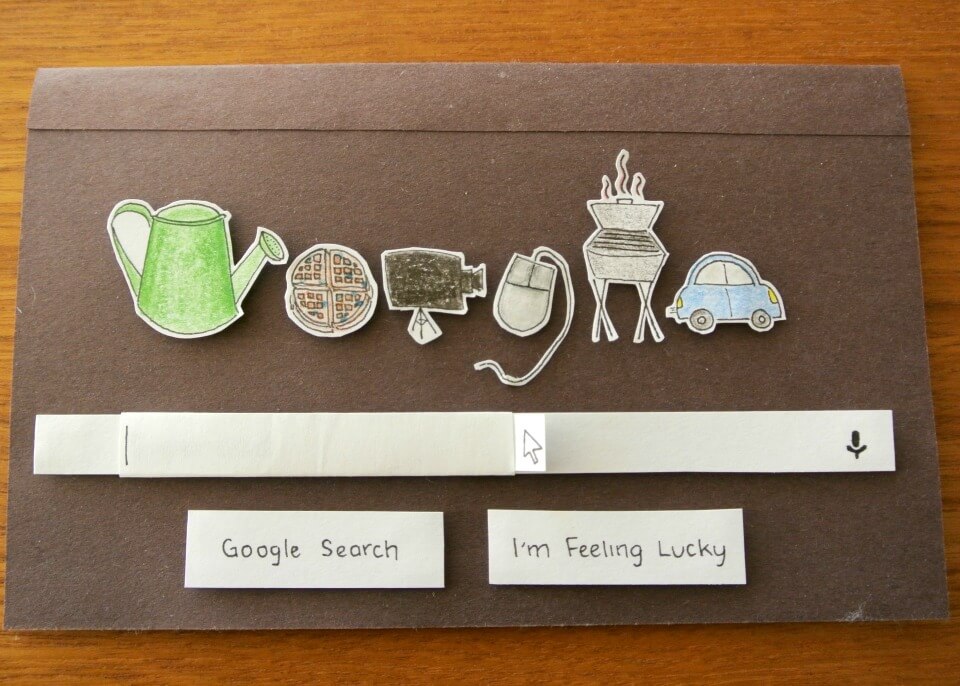 Google Search
I'm Feeling Lucky